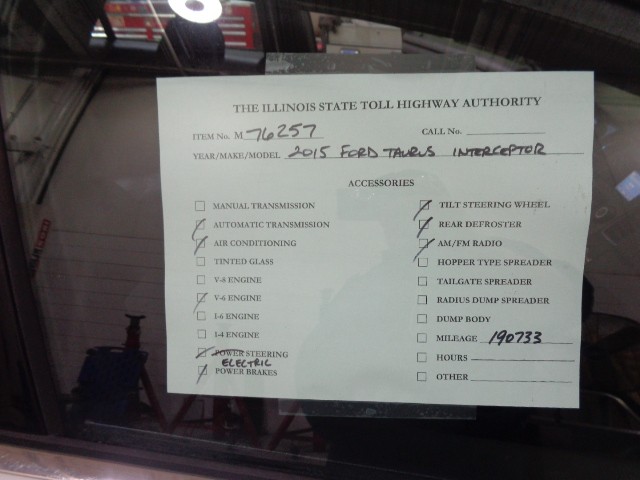 THE ILLINOIS STATE TOLL HIGHWAY AUTHORITY
ITEM No. M 76257 CALL No.
YEAR/MAKE/MODEL 2015 FORD TAURUS INTERCEPTOR
ACCESSORIES
MANUAL TRANSMISSION
AUTOMATIC TRANSMISSION
AIR CONDITIONING
TINTED GLASS
V-8 ENGINE
V-6 ENGINE
I-6 ENGINE
I-4 ENGINE
POWER STEERING
ELECTRIC
POWER BRAKES
TILT STEERING WHEEL
REAR DEFROSTER
AM/FM RADIO
HOPPER TYPE SPREADER
TAILGATE SPREADER
RADIUS DUMP SPREADER
DUMP BODY
MILEAGE 190733
HOURS
OTHER